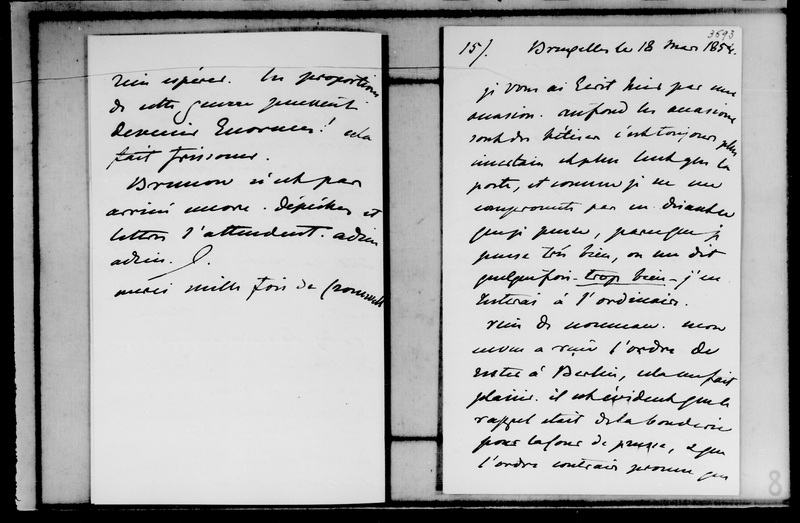 rien espérer. les proportions
de cette guerre peuvent
devenir Enormes! cela
fait frissonner.
Brunow n'est pas
arrivé encore. dépêches et
lettres l'attendent. adieu
adieu.
merci mille fois de Cromwell
3693
15/. Bruxelles le 18 mars 1854.
je vous ai Ecrit hier par une
occasion. au fond les occasions
sont des bêtises c'est toujours plus
incertain et plus lent que la
poste, et comme je ne me
compromets pas en disant ce
que je pense, parceque je
pense très bien, on me dit
quelquefois - trop bien - j'en
resterai à l'ordinaire.
rien de nouveau. mon
neveu a reçu l'ordre de
rester à Berlin, cela me fait
plaisir. il est évident que le
rappel était de la bouderie
pour la Cour de prusse, et que
l'ordre contraire prouve que
8